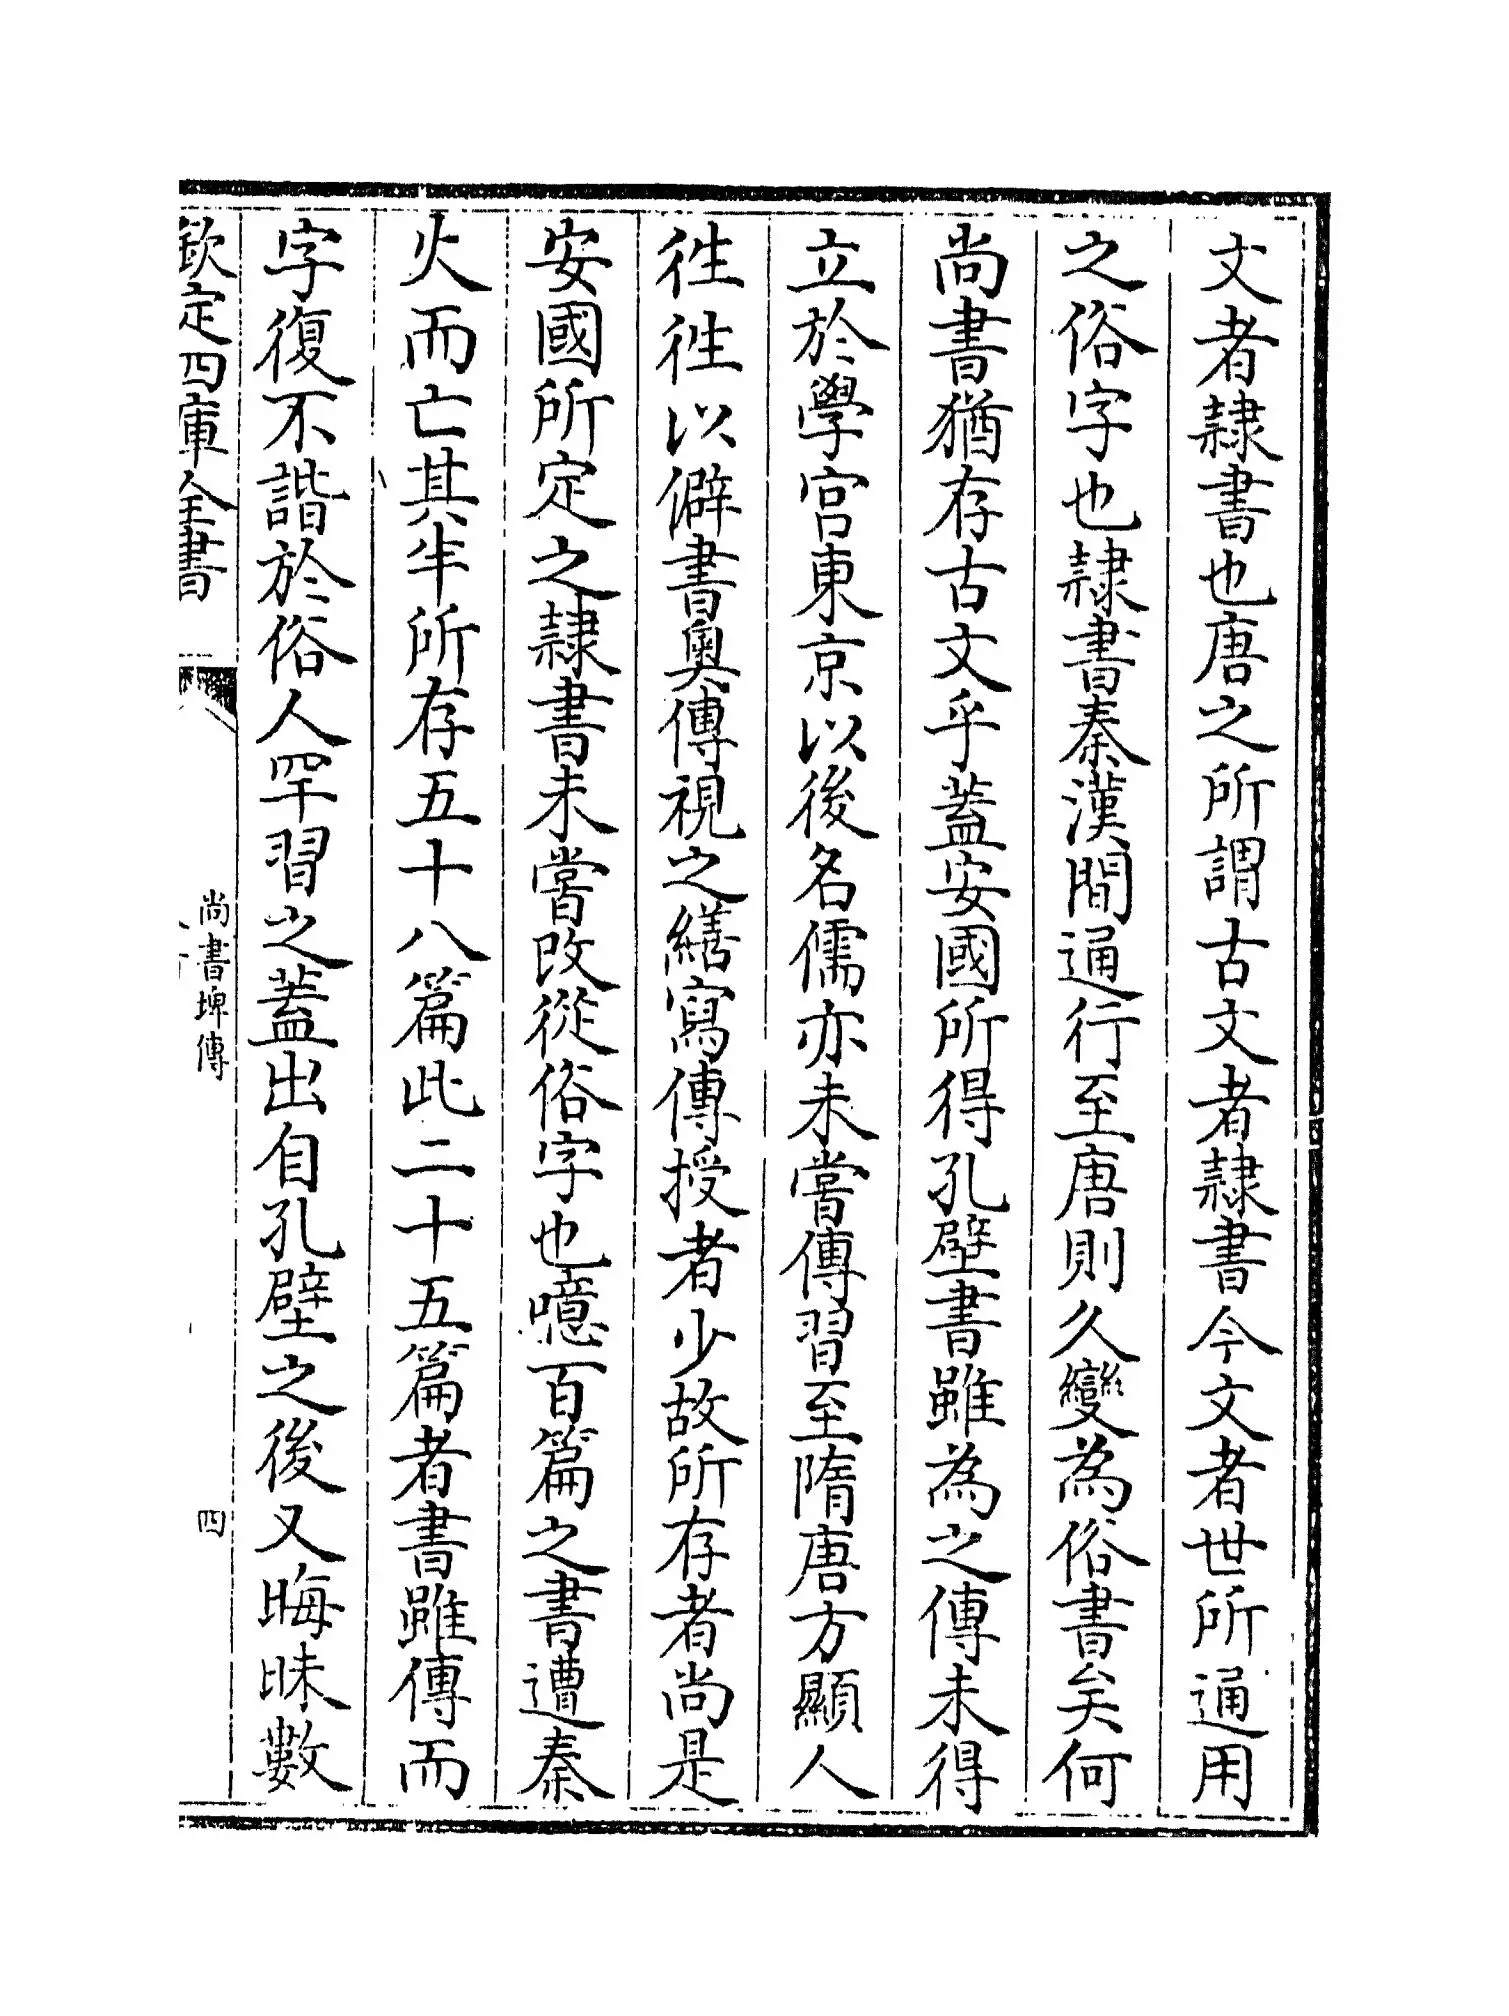 文者隷書也唐之所謂古文者隷書今文者世所通用
之俗字也隷書秦漢間通行至唐則久變為俗書矣何
尚書猶存古文乎蓋安國所得孔壁書雖為之傳未得
立於學宫東京以後名儒亦未嘗傳習至隋唐方顯人
徃徃以僻書奥傳視之繕寫傳授者少故所存者尚是
安國所定之隷書未嘗改從俗字也噫百篇之書遭秦
火而亡其半所存五十八篇此二十五篇者書雖傳而
字復不諧於俗人罕習之蓋出自孔壁之後又晦昧數
欽定四庫全書
尚書埤傳
四